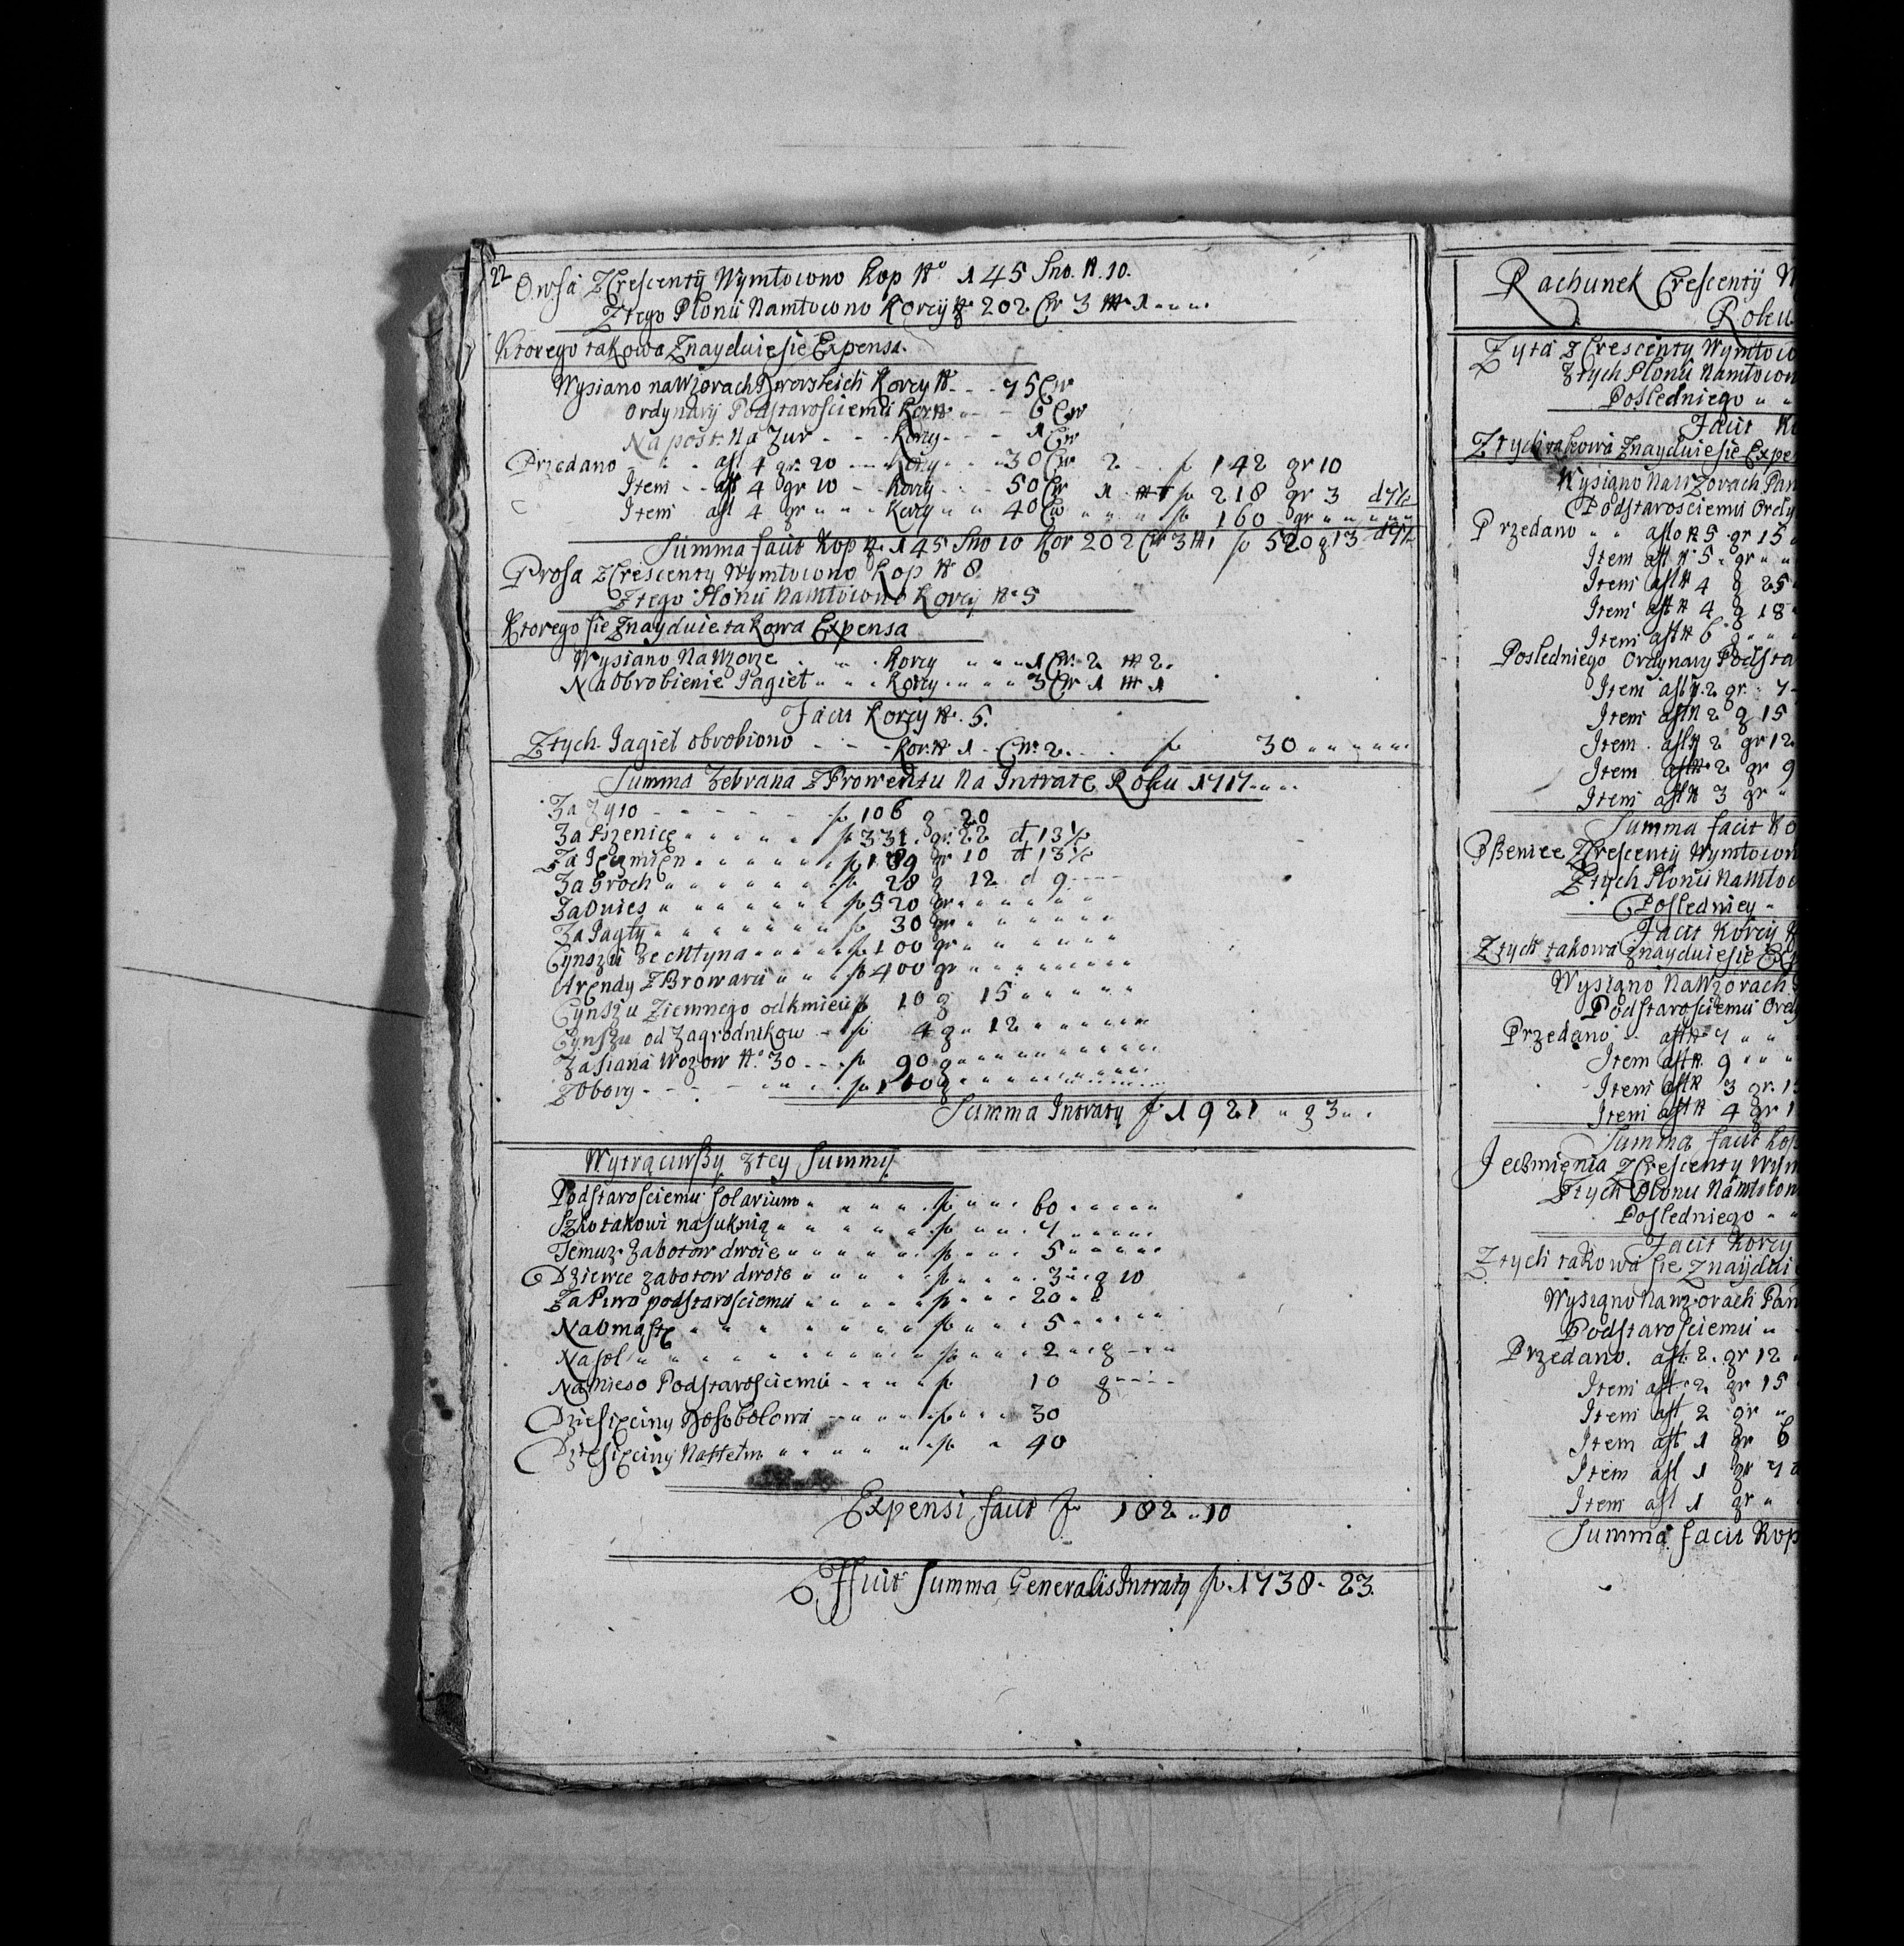 22
Owsa z Crescenty Wymłocono Kop No 145 Sno. N. 10.
Ztego Plonu Namłocono Korcy N 202 Cw 3 M 1
Ktorego takowa Znayduie sie Expensa.
Wysiano na Wzorach Dworskich Korcy N 75 Cw
Ordynary Podstarosciemu Kor N 6 Cw
Na post. Na Zur Korcy 1 Cw
Przedano a fl 4 gr. 20 Korcy 30 Cw 2 fl 142 gr 10
Item a fl 4 gr 10 Korcy 50 Cw 1 fl 218 gr 3 d 7½
Item a fl 4 gr Korcy 40 Cw fl 160 gr
Summa facit Kop N. 145 Sno 10 Kor 202 Cw 3 M 1 fl 520 g 13 d 7½
Prosa z Crescenty Wymłocono Kop N 8
Ztego Plonu Namłocono Korcy N 5
Ktorego sie Znayduie takowa Expensa
Wysiano Na Wzorze Korcy 1 Cw. 2 M 2.
Na obrobienie Jagieł Korcy 3 Cw 1 M 1
Facit Korcy N. 5.
Ztych Jagieł obrobiono Kor. N 1 Cw. 2. fl 30
Summa Zebrana z Prowentu Na Intratę Roku 1717
Za Zyto fl 106 g 20
Za Pszenicę fl 331 gr. 22 d 13½
Za Jęczmięn fl 189 gr 10 d 13½
Za Groch fl 28 g 12 d 9
Za Owies fl 520 gr
Za Jagły fl 30 gr
Cynszu Ze Młyna fl 100 gr
Arendy z Browaru fl 400 gr
Cynszu Ziemnego od kmieci fl 10 g 15
Cynszu od Zagrodnikow fl 4 g 12
Za siana Wozow No 30 fl 90 g
Z Obory fl 100 g
Summa Intraty fl 1921 g 3
Wytrąciwszy z tey Summy
Podstarosciemu solarium fl 60
Szkotakowi na suknią fl 7
Temuz Zabotow dwoie fl 5
Dziewce zabotow dwoie fl 3 g 10
Za Piwo podstarosciemu fl 20
Na omastę fl 5
Na sol fl 2 g
Na mieso Podstarosciemu fl 10 g
Dziesięciny fl 30
Dziesięciny fl 40
Expensi facit fl 182 10
Effuit Summa Generalis Intraty fl 1738 23
Rachunek Crescenty
Roku
Zyta z Crescenty Wymłoco
Ztych Plonu Namłocon
Posledniego
Facit K
Ztych takowa Znayduie sie Expe
Wysiano Na Wzorach Pan
Podstarosciemu Ordy
Przedano a flo N 5 gr 15
Item a fl N 5 gr
Item a fl N 4 g 25
Item a fl N 4 g 18
Item a fl N 6 g
Posledniego Ordynary Podsta
Item a fl N 2 gr. 7
Item a fl N 2 g 15
Item a fl N 2 gr 12
Item a fl N 2 gr 9
Item a fl N 3 gr
Summa facit Ko
Pszenice z Crescenty Wymłocon
Ztych Plonu Namłoc
Posledniey
Facit Korcy
Ztych takowa Znayduie sie Ex
Wysiano Na Wzorach
Podstarosciemu Ordy
Przedano a fl N 7
Item a fl N. 9
Item a fl N 3 gr. 1
Item a fl N 4 gr 1
Summa facit Kop
Jęczmięnia z Crescenty Wym
Ztych Plonu Namłocon
Posledniego
Facit Korcy
Ztych takowa sie Znaydui
Wysiano Na Wzorach Pan
Podstarosciemu
Przedano a fl. 2. gr 12
Item a fl 2 gr 15
Item a fl 2 gr
Item a fl 1 gr 6
Item a fl 1 gr 7
Item a fl 1 gr
Summa facit Kop